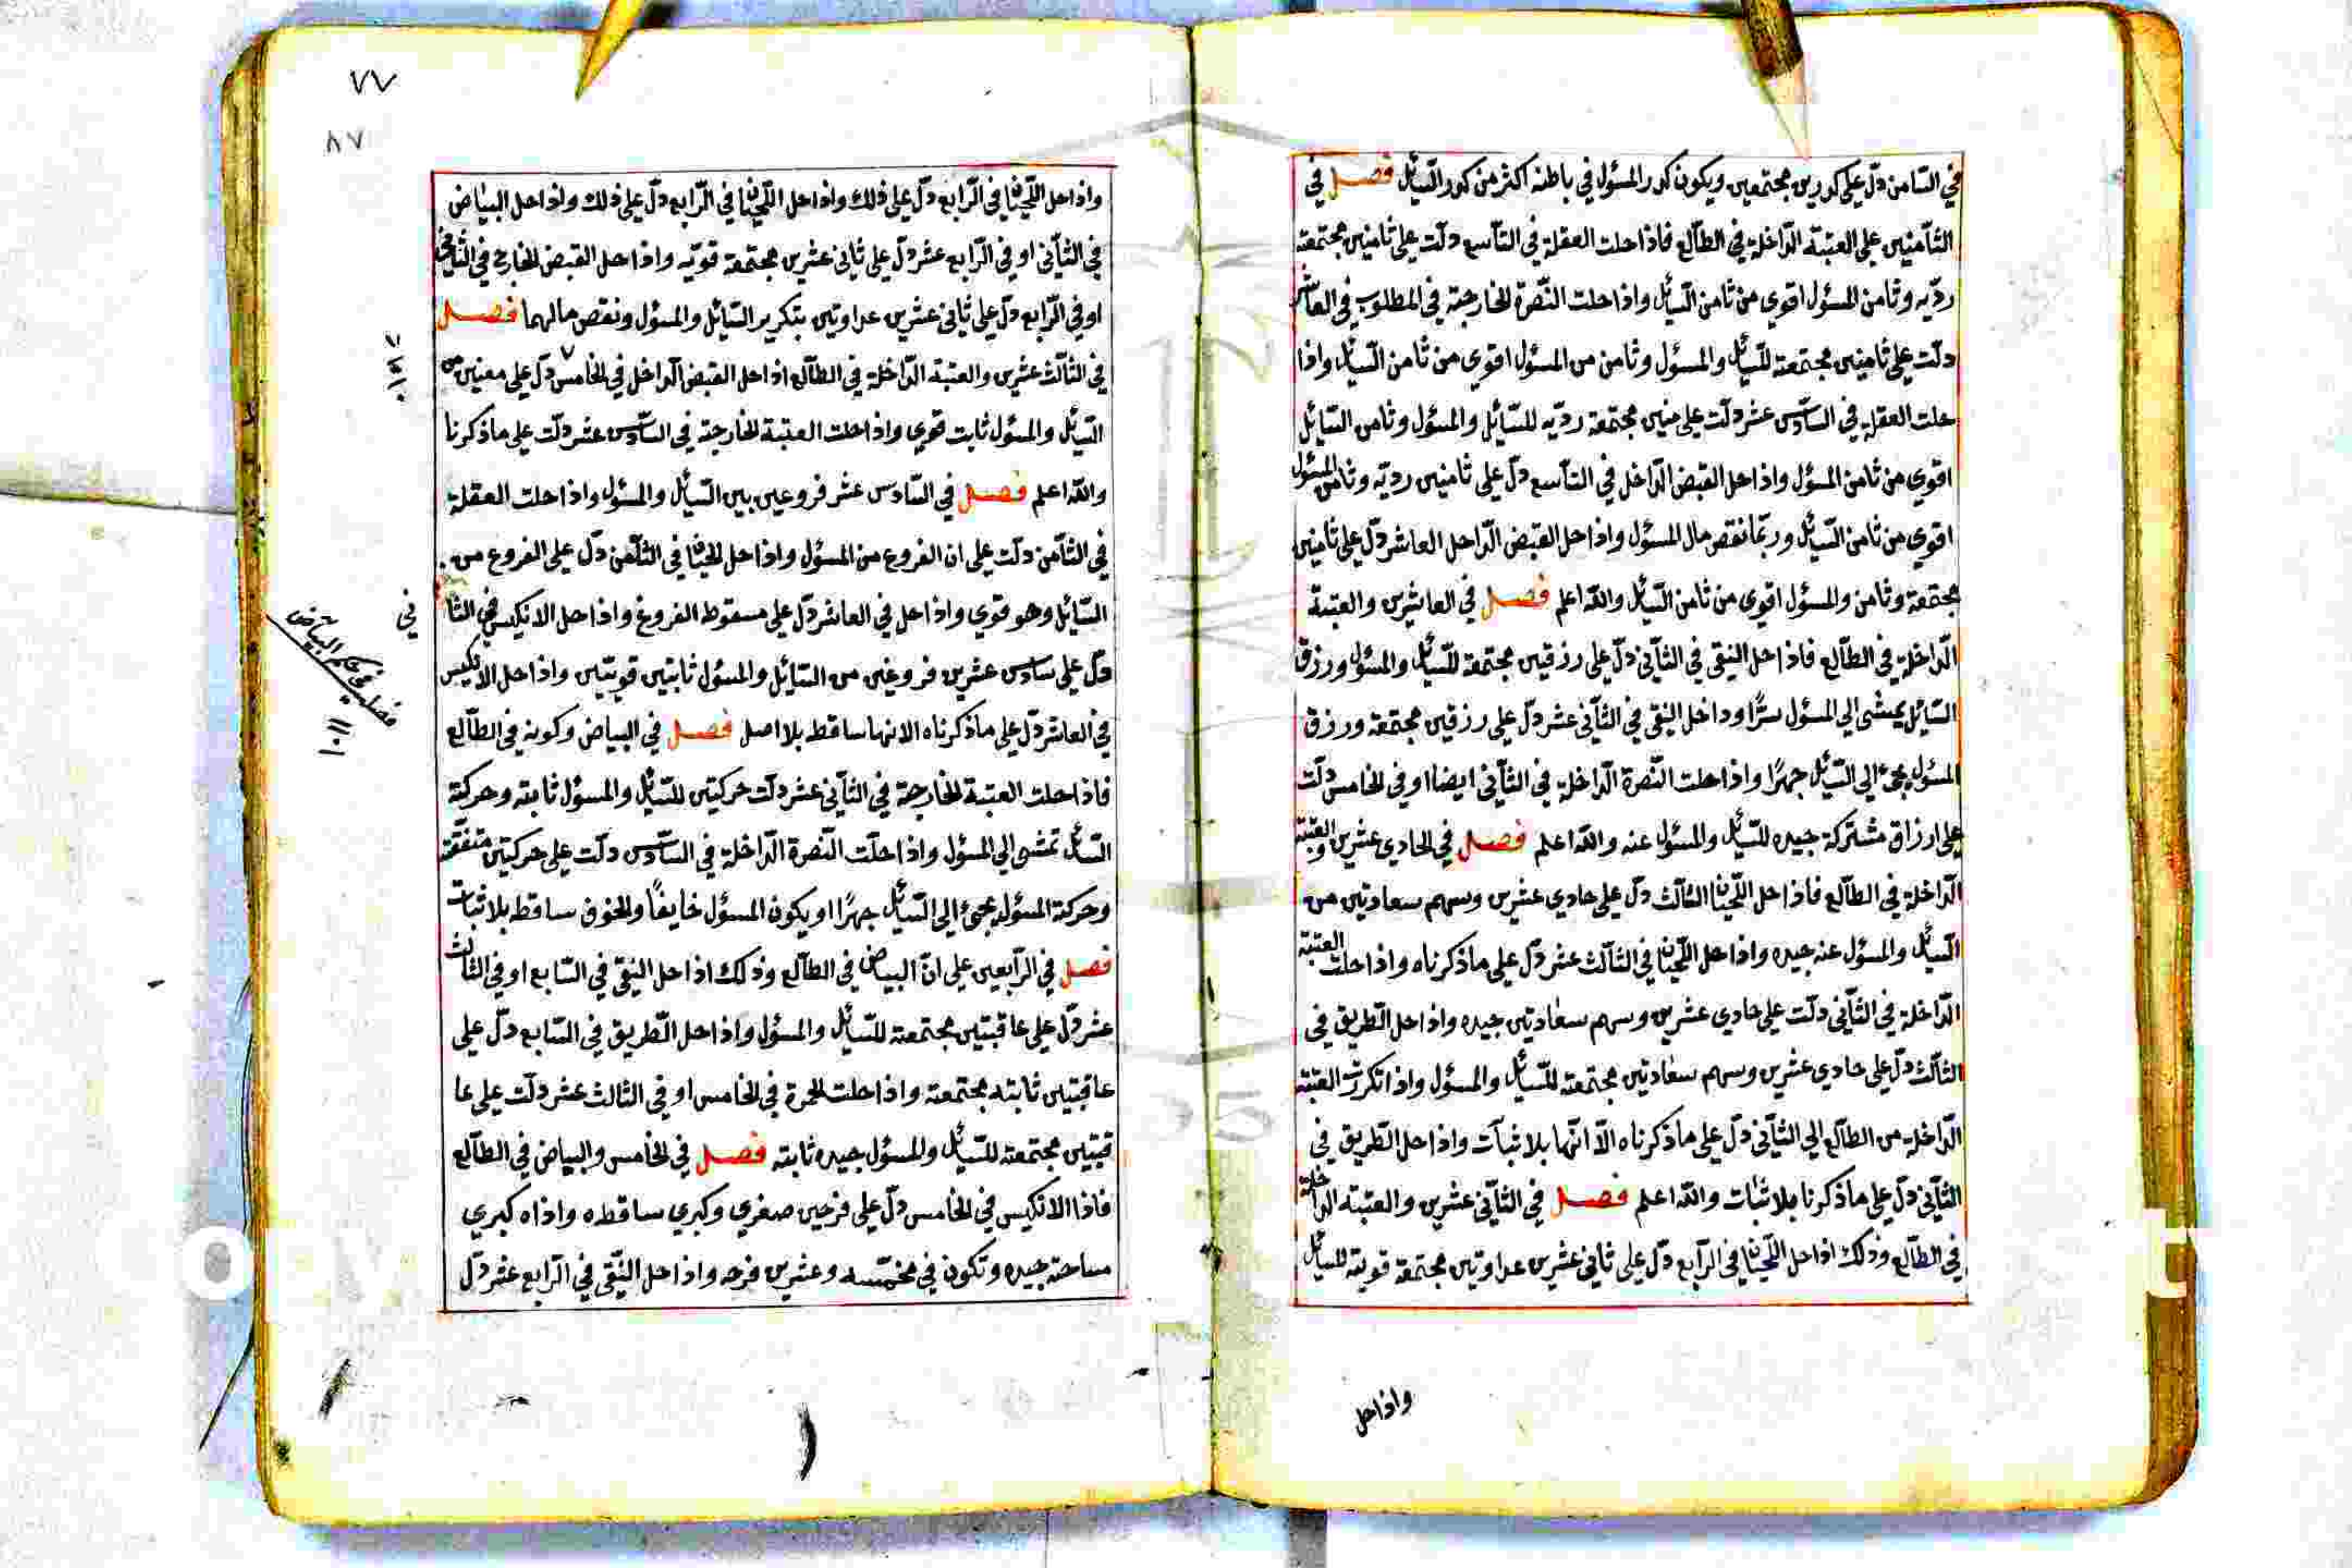 في الثامن دلّ علي كورين مجتمعين ويكون كور المسؤل في باطنه اكثر من كور السّايل فصل في
الثامنين علي العتبة الدّاخلة في الطالع فاذا حلت العقلة في التاسع دلت علي ثامنين مجتمعة
رديّه وثامن المسؤل اقوي من ثامن السّايل واذا حلت النّصرة الخارجة في المطلوب في العاشر
دلّت علي ثامنين مجتمعة للسّايل والمسؤل وثامن من المسؤل اقوي من ثامن السّايل واذا
حلت العقلة في السادس عشر دلّت علي منين مجتمعة رديّه للسّايل والمسؤل وثامن السّايل
اقوي من ثامن المسؤل واذا حل القبض الدّاخل في التاسع دلّ علي ثامنين رديّه وثامن المسؤل
اقوي من ثامن السّايل وربّما نقص مال المسؤل واذا حل القبض الدّاخل العاشر دلّ علي ثامنين
مجتمعة وثامن والمسؤل اقوي من ثامن السّايل والله اعلم فصل في العاشرين والعتبة
الدّاخلة في الطالع فاذا حل النقي في الثاني دلّ علي رزقين مجتمعة للسّايل والمسؤل ورزق
السّايل يمشي الي المسؤل سرًّا وداخل النقي في الثاني عشر دلّ علي رزقين مجتمعة ورزق
المسؤل يجئ الي السّايل جهرًا واذا حلت النّصرة الدّاخلة في الثاني ايضا او في الخامس دلّت
علي ارزاق مشتركة جيده للسّايل والمسؤل عنه والله اعلم فصل في الحادي عشرين والعتبة
الدّاخلة في الطالع فاذا حل اللّحيان الثالث دلّ علي حادي عشرين وسهم سعادتين من
السّايل والمسؤل عنه جيده واذا حل اللّحيان في الثالث عشر دلّ علي ما ذكرناه واذا حلت العتبة
الدّاخلة في الثاني دلّت علي حادي عشرين وسهم سعادتين جيده واذا حل الطريق في
الثالث دلّ علي حادي عشرين وسهم سعادتين مجتمعة للسّايل والمسؤل واذا تكررت العتبة
الدّاخلة من الطالع الي الثاني دلّ علي ما ذكرناه الّا انّها بلا ثبات واذا حل الطريق في
الثاني دلّ علي ما ذكرنا بلا ثبات والله اعلم فصل في الثاني عشرين والعتبة الداخلة
في الطالع وذلك اذا حل اللّحيان في الرابع دلّ علي ثاني عشرين عداوتين مجتمعة قوية للسّايل
واذا حل
٧٧
٨٧
واذا حل اللّحيان في الرّابع دلّ علي ذلك واذا حل اللّحيان في الرّابع دلّ علي ذلك واذا حل البياض
في الثاني او في الرّابع عشر دلّ علي ثاني عشرين مجتمعة قويّه واذا حل القبض الخارج في الثاني
او في الرّابع دلّ علي ثاني عشرين عداوتين بتكرير السّايل والمسؤل ونقص ما لهما فصل
في الثالث عشرين والعتبة الدّاخلة في الطالع اذا حل القبض الداخل في الخامس دلّ علي معنيين من
السّايل والمسؤل ثابت قوي واذا حلت العتبة الخارجة في السّادس عشر دلّت علي ما ذكرنا
والله اعلم فصل في السّادس عشر فروعين بين السّايل والمسؤل واذا حلت العقلة
في الثامن دلّت علي ان الفروع من المسؤل واذا حل اللحيان في الثامن دلّ علي الفروع من
السّايل وهو قوي واذا حل في العاشر دلّ علي سقوط الفروع واذا حل الانكيس في الثا
دلّ علي سادس عشرين فروغين من السّايل والمسؤل ثابتين قويّين واذا حل الانكيس
في العاشر دلّ علي ما ذكرناه الا انها ساقط بلا اصل فصل في البياض وكونه في الطالع
فاذا حلت العتبة الخارجة في الثاني عشر دلّت حركتين للسّايل والمسؤل ثابته وحركة
السّايل تمشي الي المسؤل واذا حلّت النّصرة الدّاخلة في السادس دلّت علي حركتين متفقة
وحركة المسؤل يجئ الي السّايل جهرًا او يكون المسؤل خايفًا والخوف ساقط بلا ثبات
فصل في الرّابعين علي انّ البياض في الطالع وذلك اذا حل النقي في السّابع او في الثالث
عشر دلّ علي عاقبتين مجتمعة للسّايل والمسؤل واذا حل الطريق في السّابع دلّ علي
عاقبتين ثابته مجتمعة واذا حلت الحمرة في الخامس او في الثالث عشر دلّت علي عا
قبتين مجتمعة للسّايل والمسؤل جيده ثابته فصل في الخامس والبياض في الطالع
فاذا الانكيس في الخامس دلّ علي فرحين صغري وكبري ساقطه واذا كبري
ساحته جيده وتكون في مخمّسه وعشرين فرحه واذا حل النقي في الرّابع عشر دلّ
في
فصل في حكم البياض